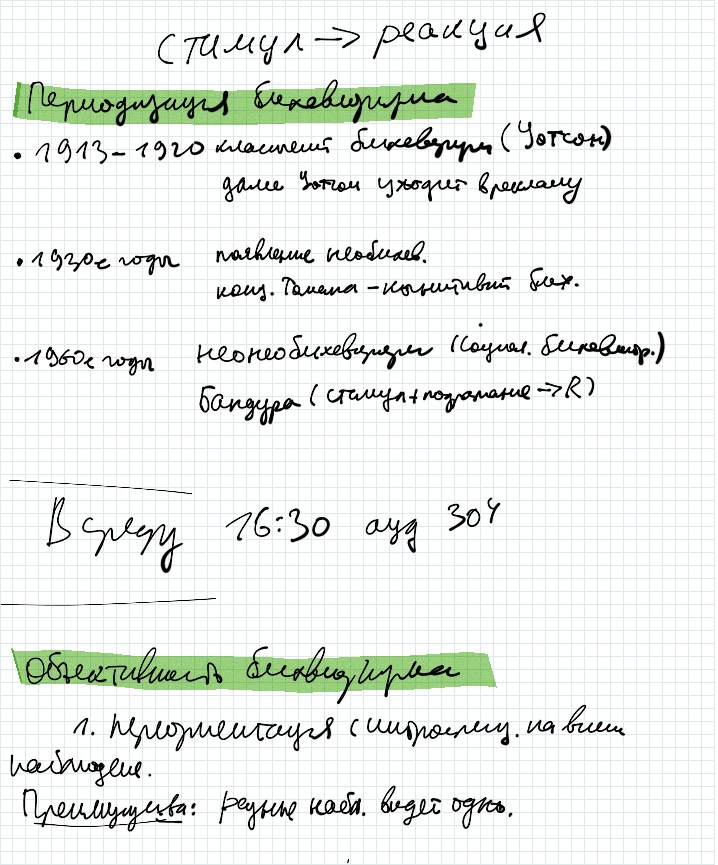 стимул → реакция
Периодизация бихевиоризма
• 1913 – 1920 классичесий бихевиоризм (Уотсон)
далее Уотсон уходит в рекламу
• 1930е годы появление необихев.
конц. Толмена – когнитивный бих.
• 1960е годы неонеобихевиоризм (социал. бихевиор.)
Бандура (стимул + подражание → R)
В среду 16:30 ауд 304
Объективность бихевиоризма
1. Переориентация с интроспекц. на внеш
наблюдение.
Преимущества: разные набл. видят одно.